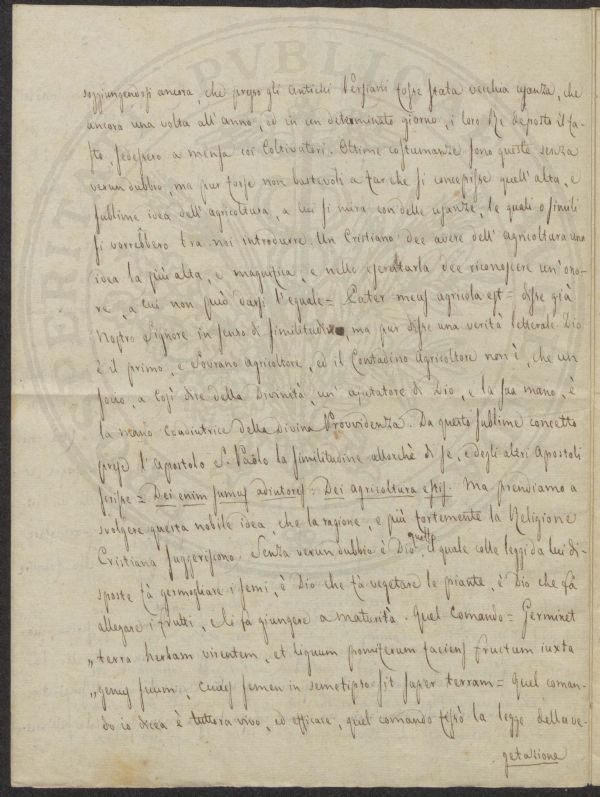 soggiungendosi ancora, che presso gli antichi Persiani fosse stata vecchia usanza, che
ancora una volta all'anno, ed in un determinato giorno, i loro Re deposto il fa-
sto sedessero a mensa coi Coltivatori. Ottime costumanze sono queste senza
verun dubbio, ma pur forse non bastevoli a far che si concepisse quell'alta, e
sublime idea dell'agricoltura, a cui si mira con delle usanze, le quali o simili
si vorrebbero tra noi introdurre. Un Cristiano dee avere dell'agricoltura una
idea la più alta, e magnifica, e nello esercitarla dee riconoscere un'ono-
re, a cui non può darsi l'eguale = Pater meus agricola est = disse già
Nostro Signore in senso di similitudine, ma pur disse una verità letterale. Dio
è il primo, e Sovrano agricoltore, ed il Contadino agricoltore non è, che un
socio, a così dire della Divinità, un'ajutatore di Dio, e la sua mano, è
la mano Coadiutrice della Divina Provvidenza. Da questo sublime concetto
prese l'Apostolo S. Paolo la similitudine allorchè di se, e degli altri Apostoli
scrisse = Dei enim sumus adiutores: Dei agricoltura estis. Ma prendiamo a
svolgere questa nobile idea, che la ragione, e più fortemente la Religione
Cristiana suggeriscono. Senza verun dubbio è Dio quello, il quale colle leggi da lui di-
sposte fà germogliare i semi, è Dio che fà vegetare le piante, è Dio che fà
allegare i frutti, e li fà giungere a maturità. Quel Comando = Germinet
„ terra herbam virentem, et lignum pomiferum faciens fructum iuxta
„ genus suum, cuius semen in semetipso sit super terram = Quel coman-
do io dicea è tuttora vivo, ed efficace, quel comando fissò la legge della ve-
getazione